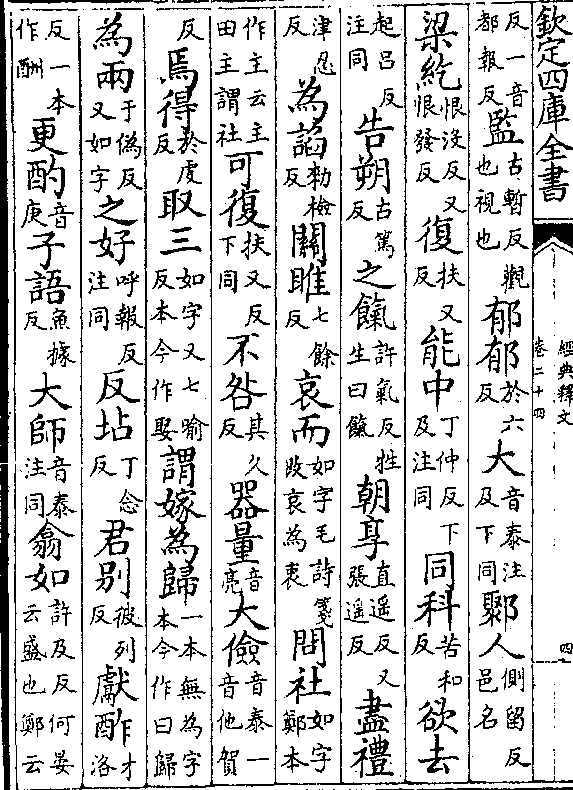 欽定四庫全書
經典釋文
卷二十四
四
反一音都報反監古暫反觀也視也郁郁於六反大音泰注及下同鄹人側留反邑名
梁紇恨没反又恨發反復扶又反能中丁仲反下及注同同科苦和反欲去
起呂反注同告朔古篤反之餼許氣反牲生曰餼朝享直遥反又張遥反盡禮
津忍反為諂勑檢反關雎七餘反哀而如字毛詩箋改哀為衷問社如字鄭本
作主云主田主謂社可復扶又反下同不咎其久反器量音亮大儉音泰一音他賀
反焉得於虔反取三如字又七喻反本今作娶謂嫁為歸一本無為字本今作曰歸
為兩于偽反又如字之好呼報反注同反坫丁念反君别彼列反獻酢才洛
反一本作酬更酌音庚子語魚據反大師音泰注同翕如許及反何晏云盛也鄭云